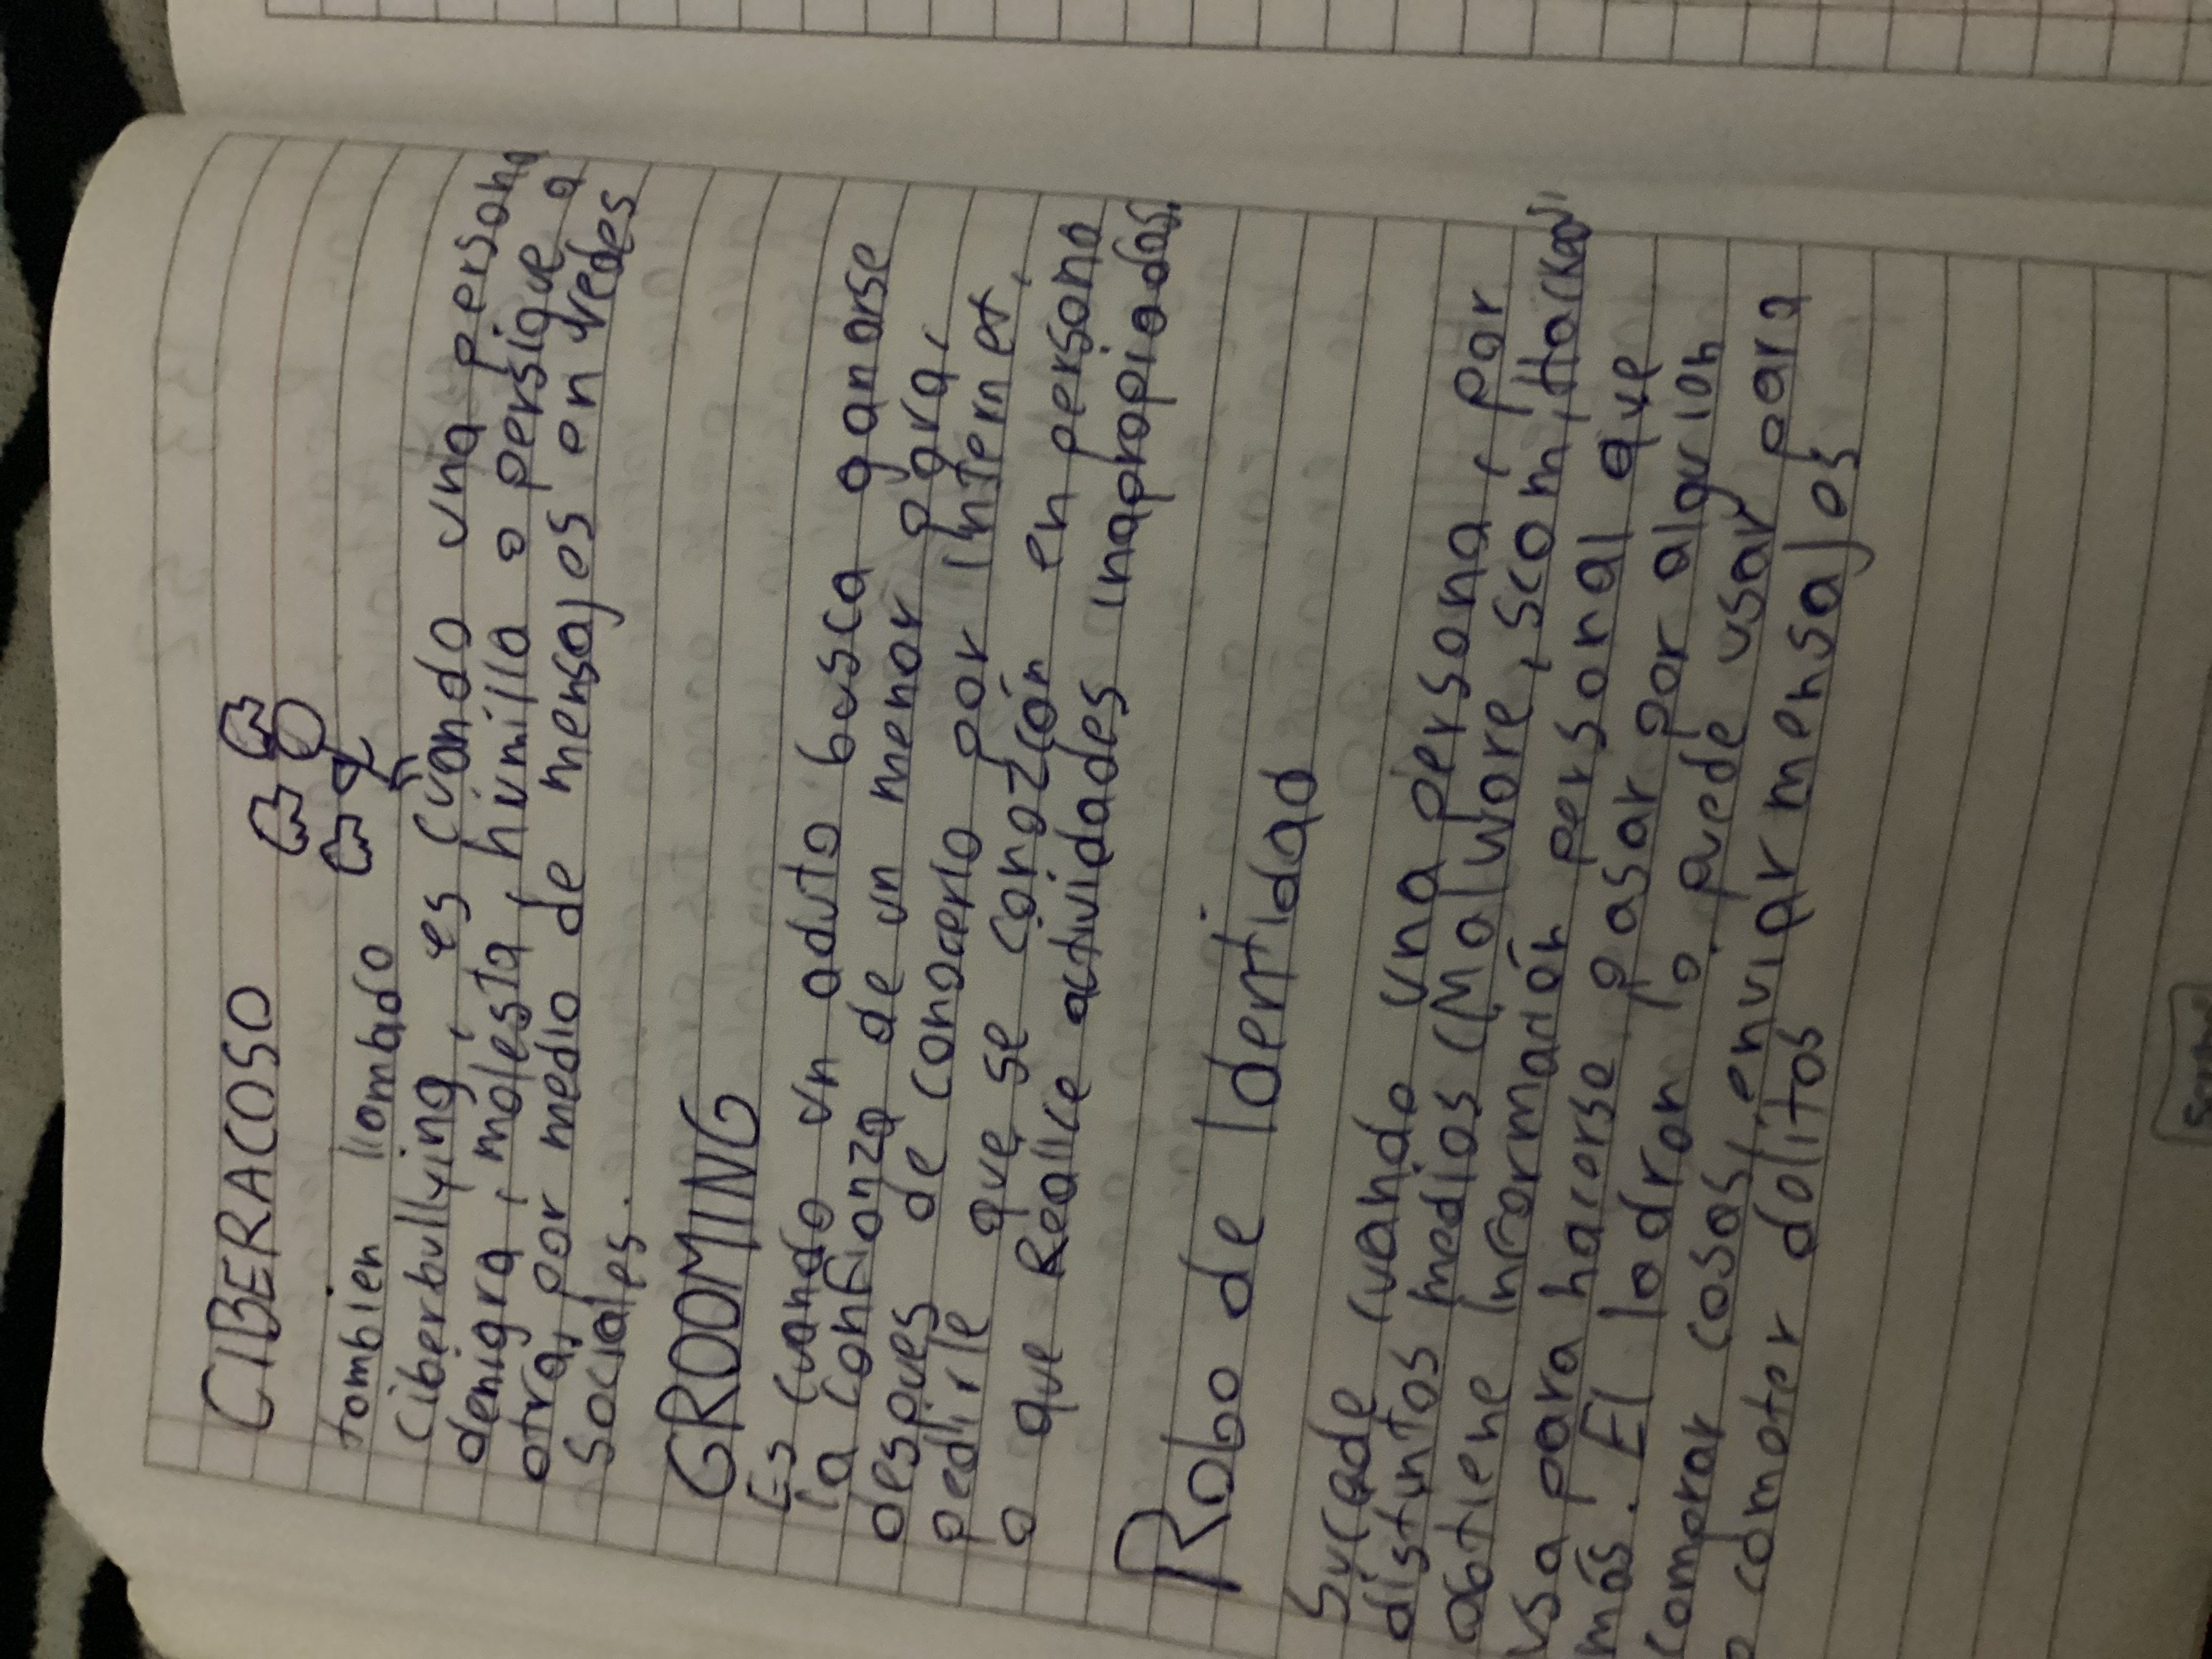 CIBERACOSO
tombien llombado
ciberbullying, es cuando una persona
denigra, molesta, humilla o persigue a
otra, por medio de mensajes en redes
sociales.
GROOMING
Es cuando un aduto busca ganarse
la confianza de un menor para,
despues de conocerlo por internet,
pedirle que se conozcan en persona
o que Realice actividades inapropiadas.
Robo de Identidad
Sucede cuando una persona, por
distintos medios (Malware, scam, Hackeos)
obtiene informacion personal que
usa para hacerse pasar por alguien
más. El ladron lo puede usar para
comprar cosas, enviar mensajes
o cometer delitos